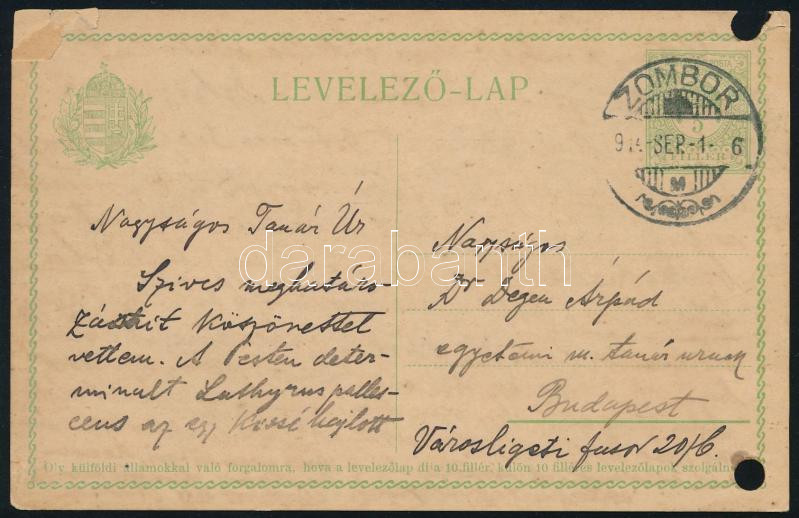 LEVELEZŐ-LAP
ZOMBOR
914-SEP.-1- 6
M
5
FILLÉR
POSTA
Nagyságos Tanár Úr
Szives meghatáro-
zásait köszönettel
vettem. A Pesten deter-
minalt Lathyrus palles-
cens az egy kissé hajlott
Nagságos
Dr Degen Árpád
egyetemi m. tanár urnak
Budapest
Városligeti fasor 20/b.
darabanth
Oly külföldi államokkal való forgalomra, hova a levelezőlap díja 10 fillér, külön 10 filléres levelezőlapok szolgálnak